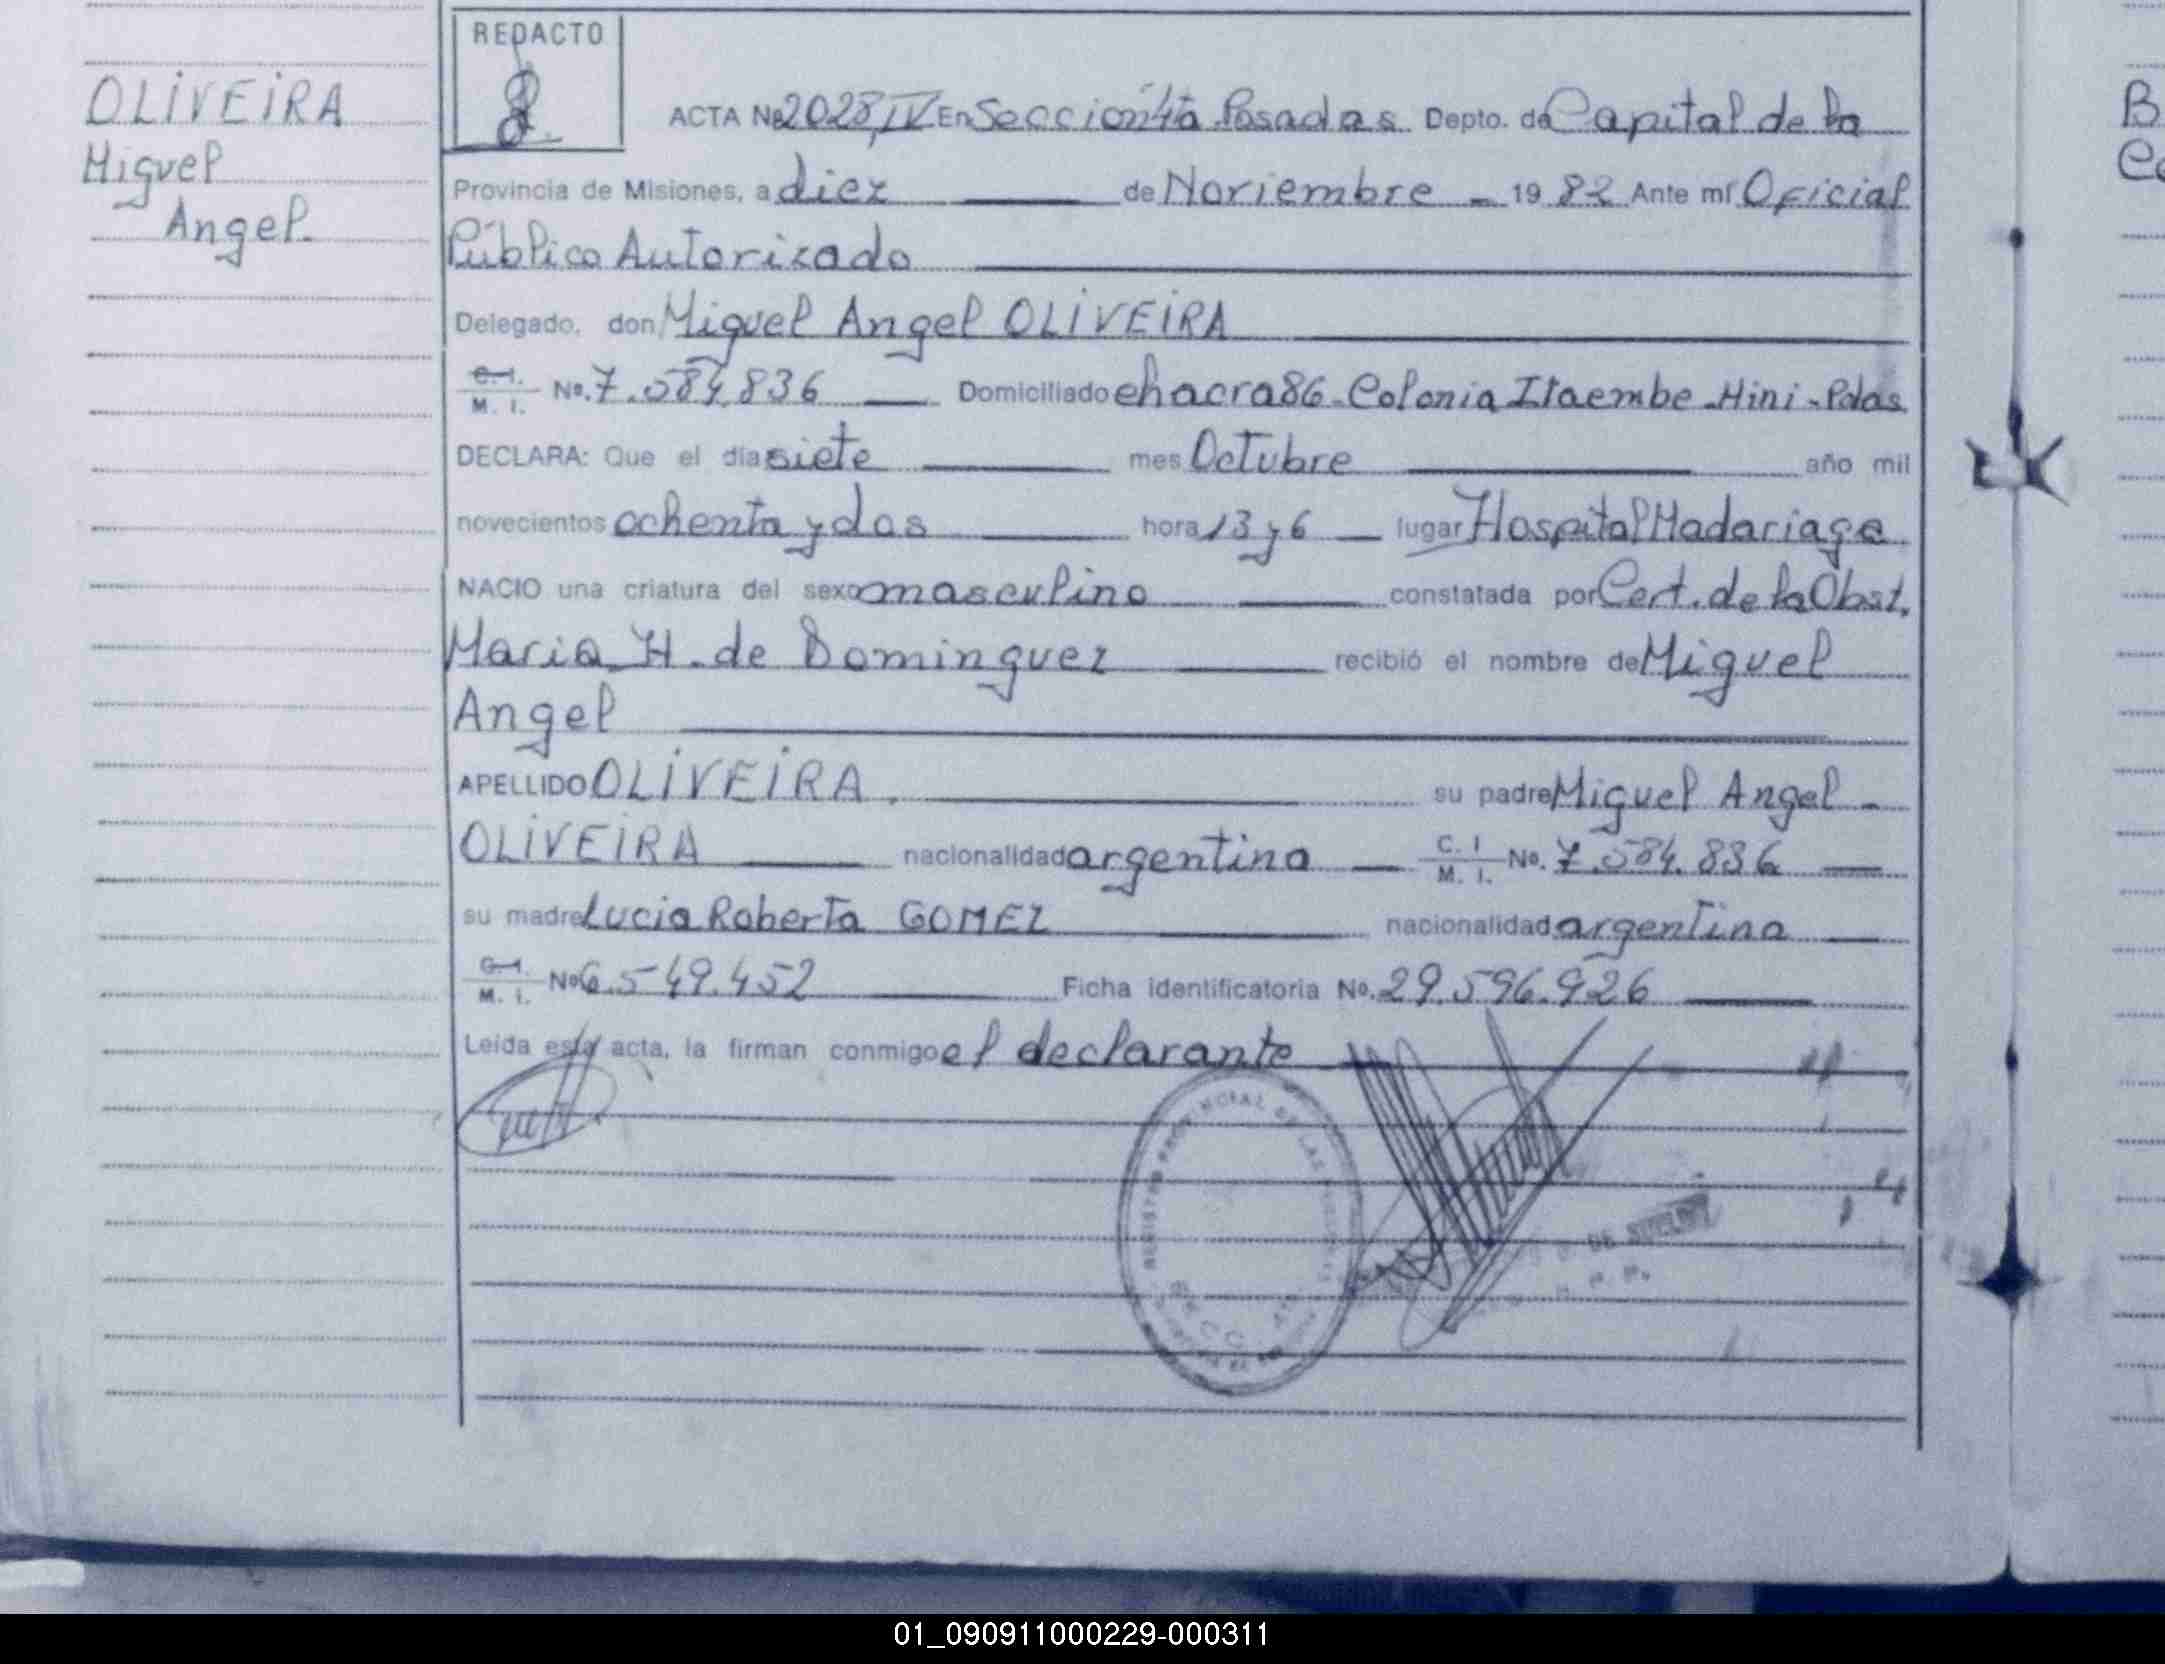 REDACTO
OLIVEIRA
Miguel
Angel
ACTA Nº 2028, IV En Sección 4ta Posadas Depto. de Capital de la
Provincia de Misiones, a diez de Noviembre 1982 Ante mí Oficial
Público Autorizado
Delegado, don Miguel Angel OLIVEIRA
C. I. M. I. Nº. 7.584.836 Domiciliado chacra 86 - Colonia Itaembe - Mini - Pdas
DECLARA: Que el día siete mes Octubre año mil
novecientos ochenta y dos hora 13 y 6 lugar Hospital Madariaga
NACIO una criatura del sexo masculino constatada por Cert. de la Obst.
Maria H. de Dominguez recibió el nombre de Miguel
Angel
APELLIDO OLIVEIRA. su padre Miguel Angel
OLIVEIRA nacionalidad argentina C. I M. I. Nº. 7.584.836
su madre Lucia Roberta GOMEZ nacionalidad argentina
C. I. M. I. Nº 6.549.452 Ficha identificatoria Nº. 29.596.926
Leída esta acta, la firman conmigo el declarante
REGISTRO PROVINCIAL DE LAS PERSONAS
01_090911000229-000311